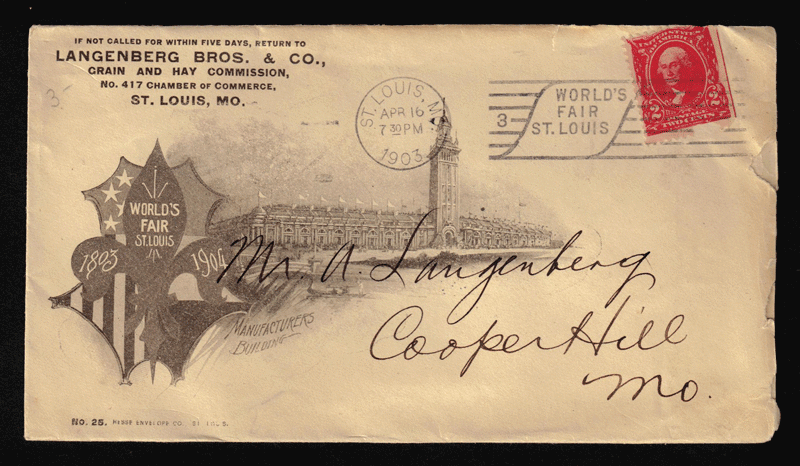 IF NOT CALLED FOR WITHIN FIVE DAYS, RETURN TO
LANGENBERG BROS. & CO.,
GRAIN AND HAY COMMISSION,
No. 417 CHAMBER OF COMMERCE,
ST. LOUIS, MO.
3-
ST. LOUIS, MO.
APR 16
7 30 PM
1903
3
WORLD'S
FAIR
ST. LOUIS
UNITED STATES
OF AMERICA
2 2
POSTAGE
TWO CENTS
WORLD'S
FAIR
ST. LOUIS
1803 1904
MANUFACTURERS
BUILDING
Mr. A. Langenberg
Cooper Hill
Mo.
No. 25. HESSE ENVELOPE CO. ST. LOUIS.